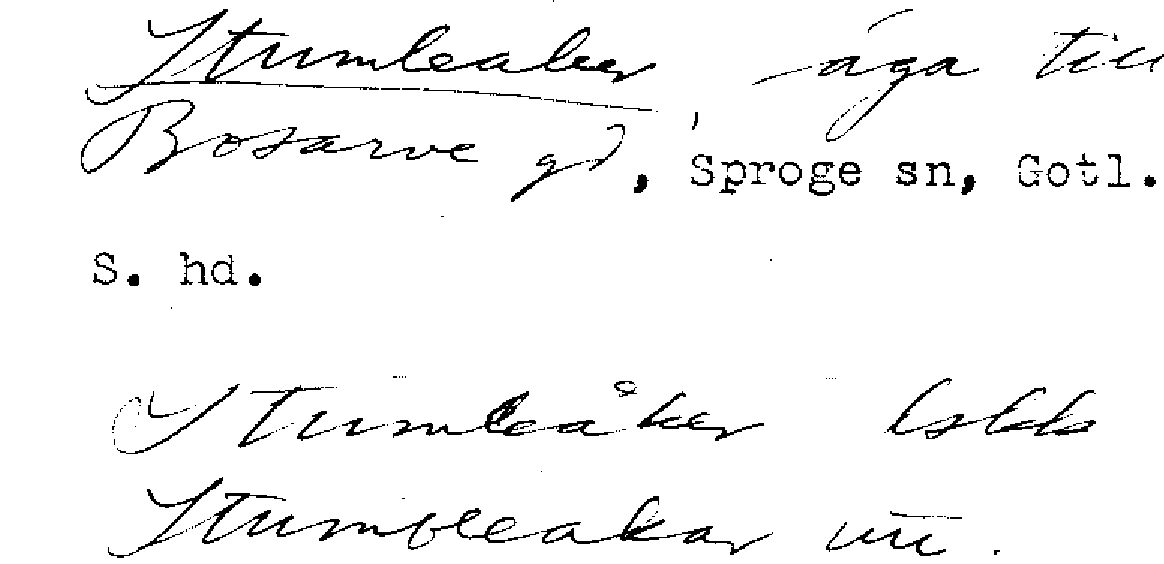 Stumleaker, -äga till
Bosarve gd, Sproge sn, Gotl.
S. hd.
Stumleåker lskk
Stumbleakar